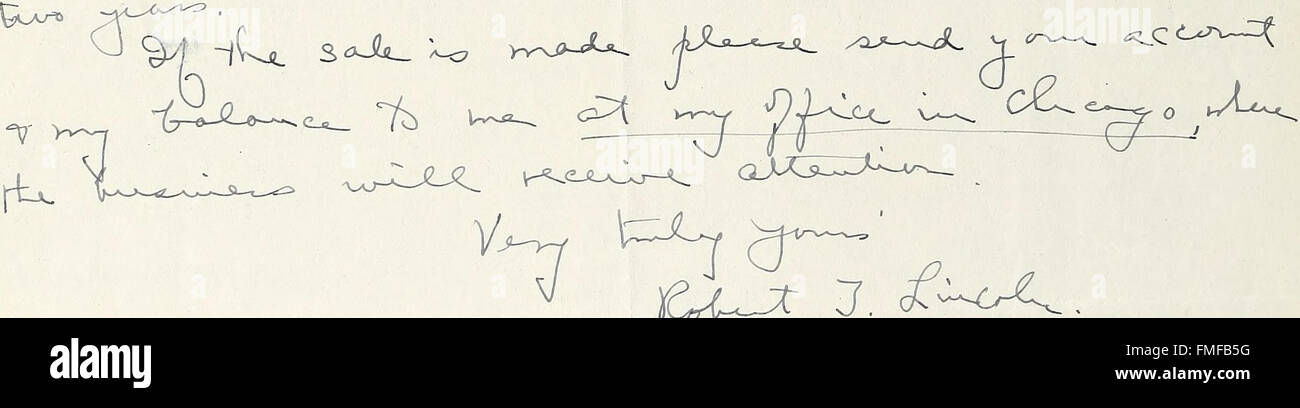 two years.
If the sale is made please send your account
& my balance to me at my office in Chicago, where
the business will receive attention.
Very truly yours
Robert T. Lincoln.
alamy
Image ID: FMFB5G
www.alamy.com